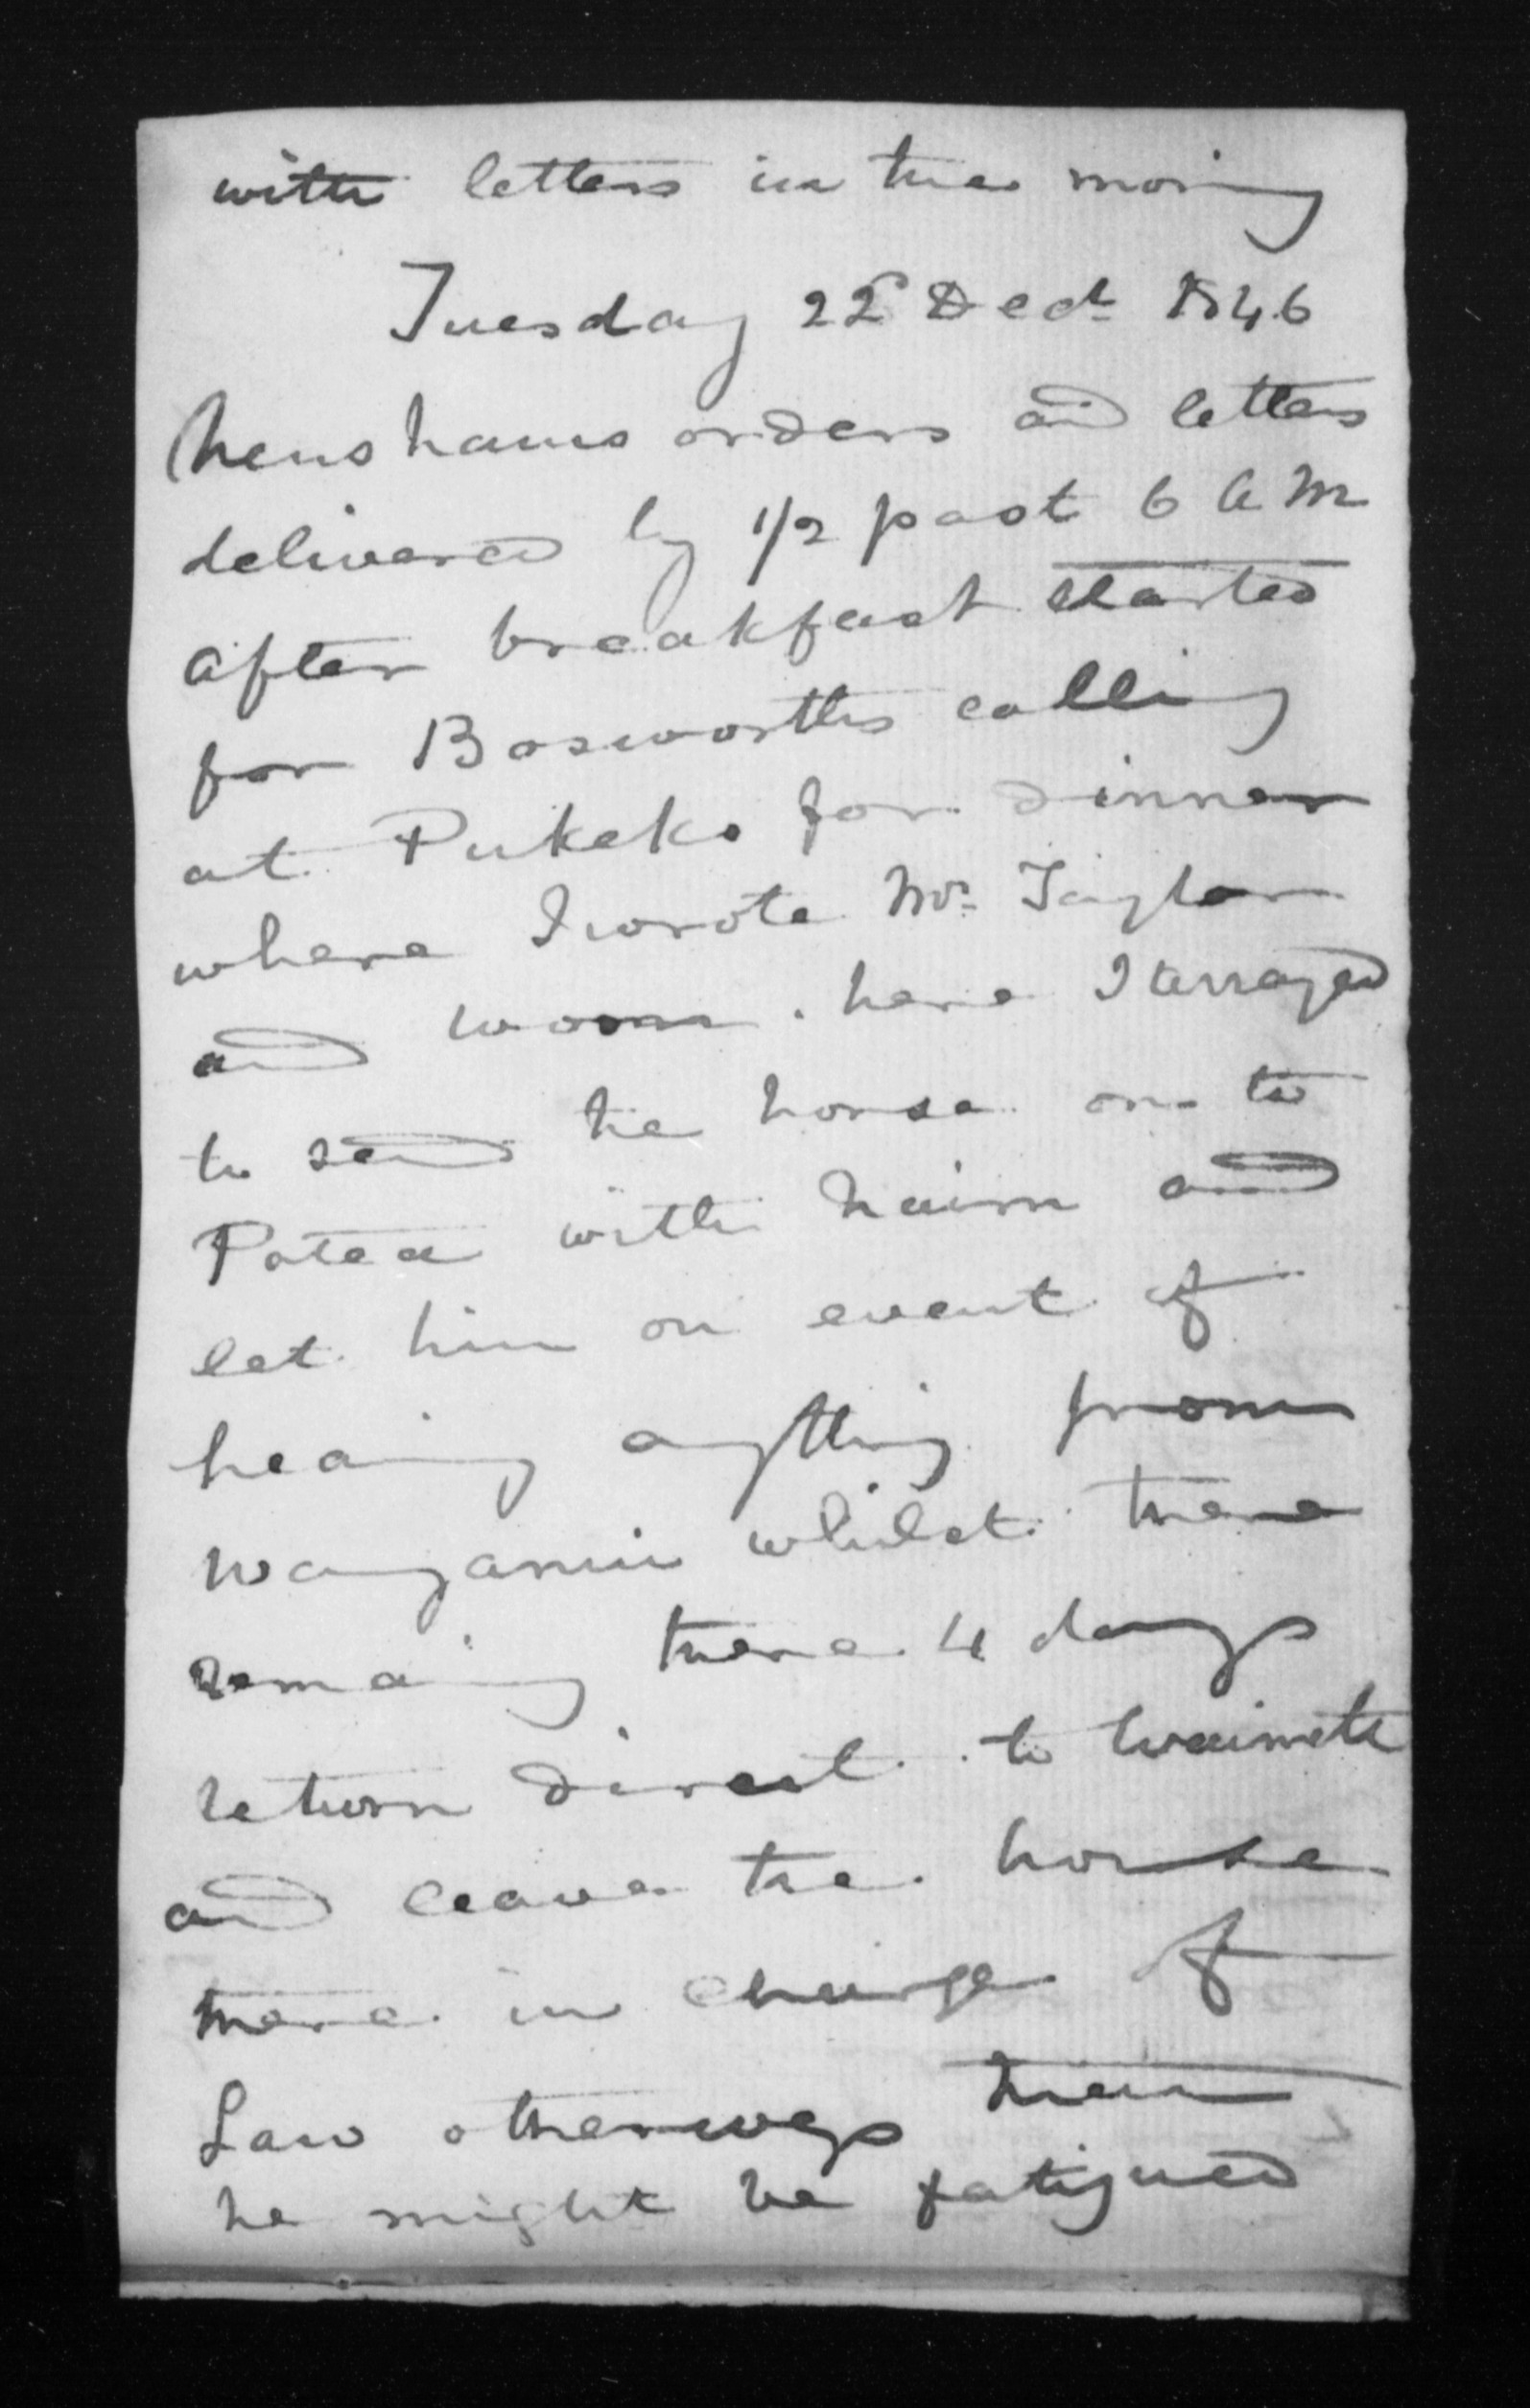 with letters in the morning
Tuesday 22d Decr 1846
Henshaws orders and letters
delivered by 1/2 past 6 A M
after breakfast started
for Bosworths calling
at Pukeko for dinner
where I wrote Mr Taylor
and . here I arraged
to send the horse on to
Patea with and
let him on event of
hearing anything from
Wanganui whilst there
remaing there 4 days
return direct to Waimate
and leave the horse
there in charge of
Law otherways
he might be fatigued